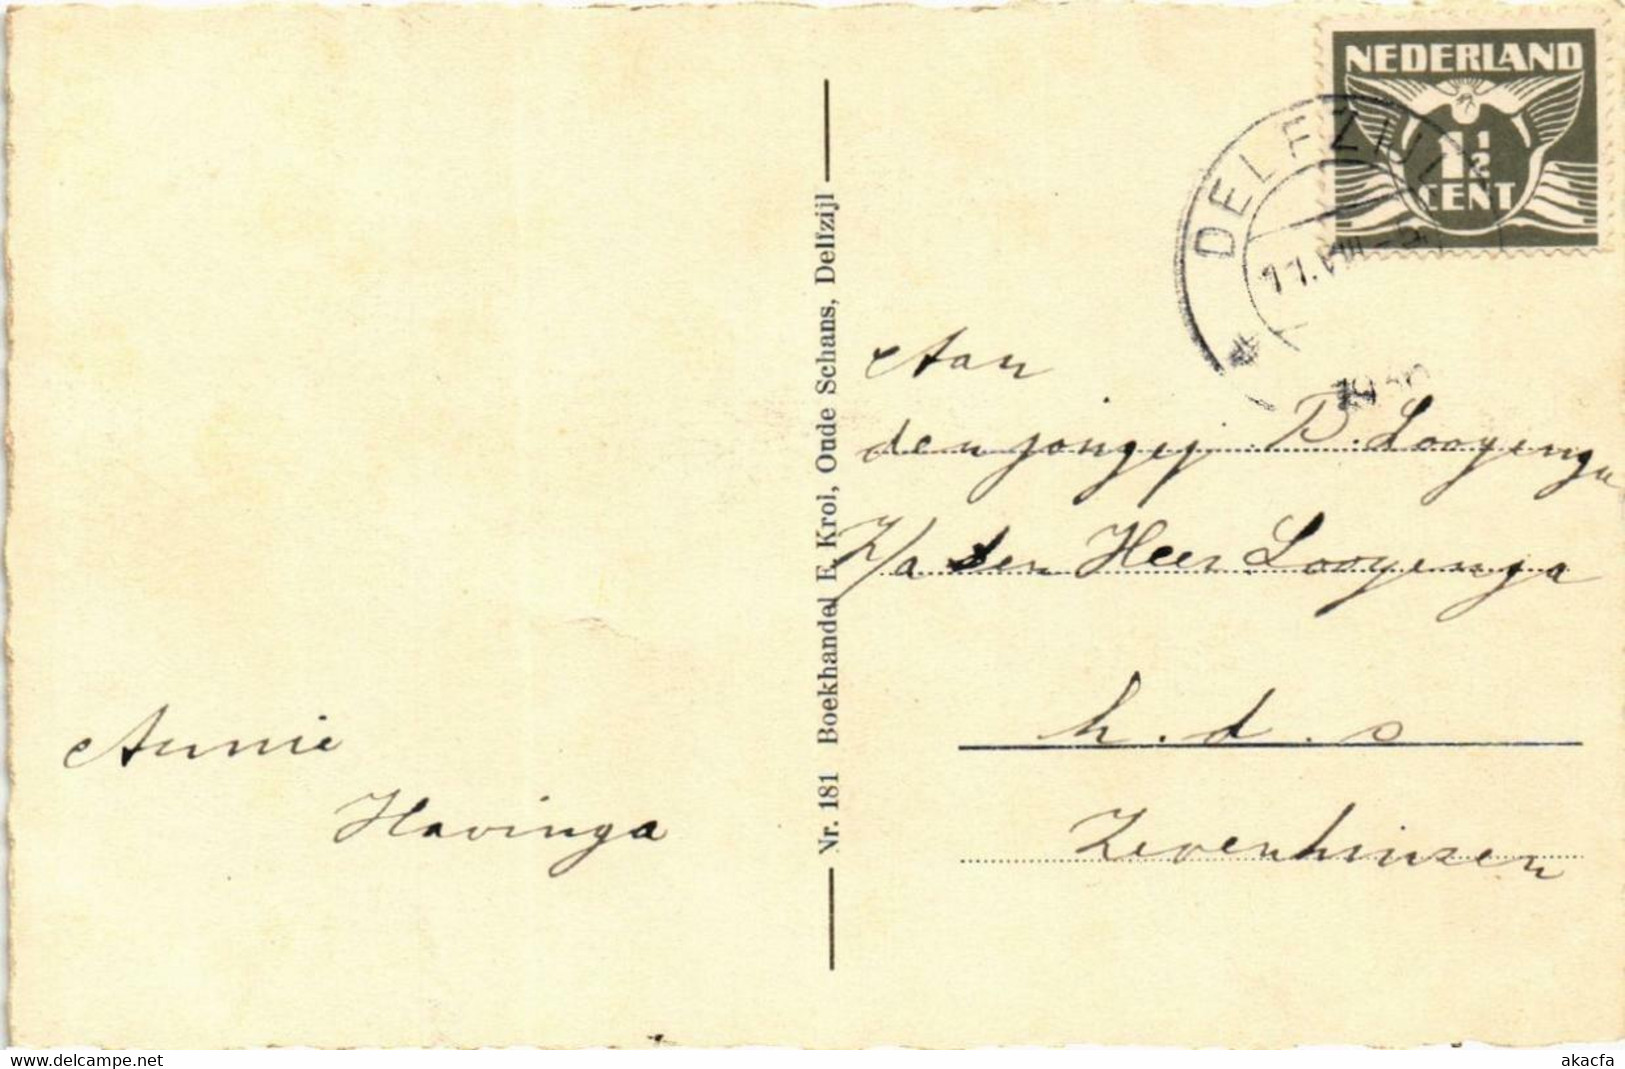 NEDERLAND
1 1/2
CENT
DELFZIJL
11.VIII
Aan
den jongej. B. Looyenga
Z/a den Heer Looyenga
h.d.s
Zevenhuizen
Annie
Havinga
Nr. 181 Boekhandel E. Krol, Oude Schans, Delfzijl
akacfa
https://www.delcampe.net